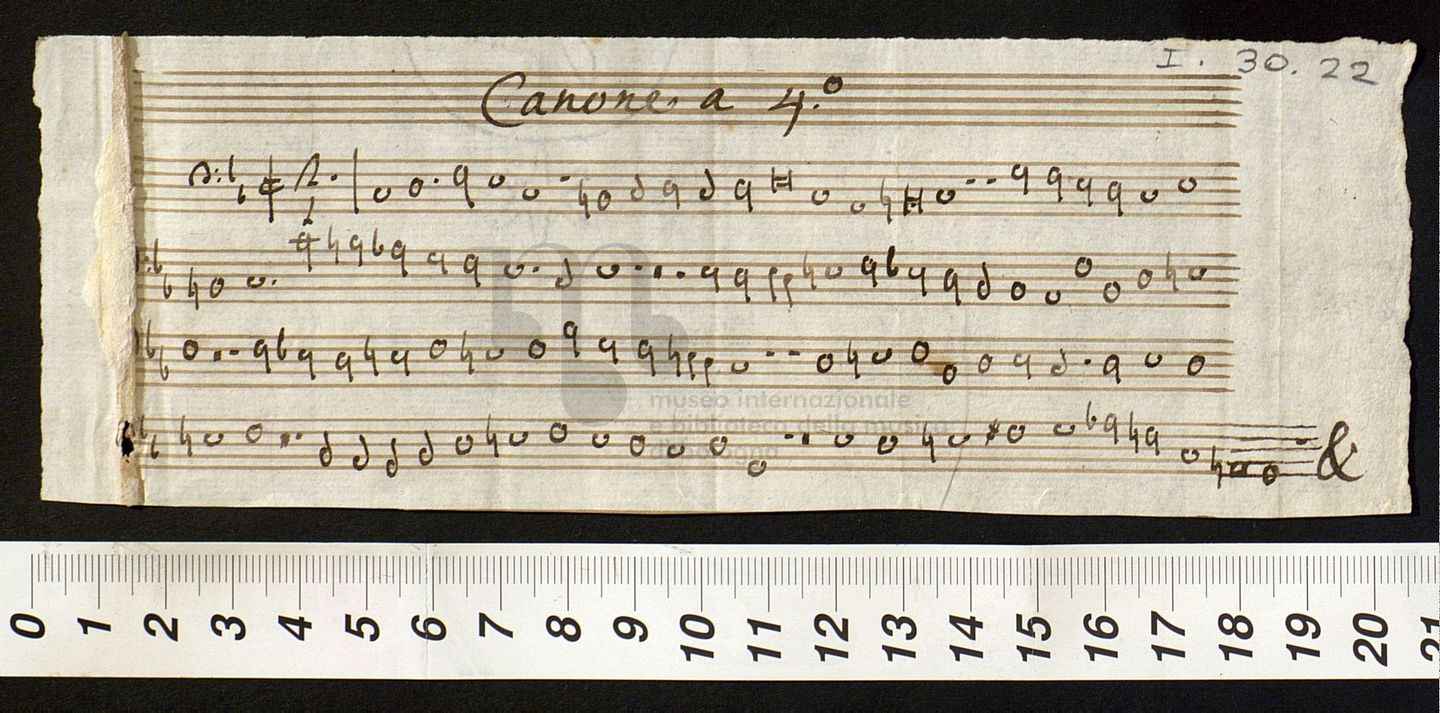 I. 30. 22
Canone a 4.º
museo internazionale
e biblioteca della musica
di bologna
0 1 2 3 4 5 6 7 8 9 10 11 12 13 14 15 16 17 18 19 20 21